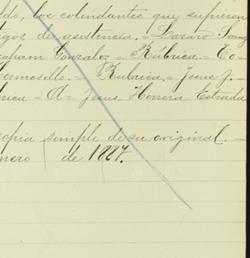 do, los colindantes que supieron
gos de asistencia. = Lázaro
Gonzalez = Rúbrica. = Eo-
ermosillo. = Rubrica. = Jesus J.
brica = A = Jesus Herrera Estrada
opia simple de su original. —
nero de 1887.